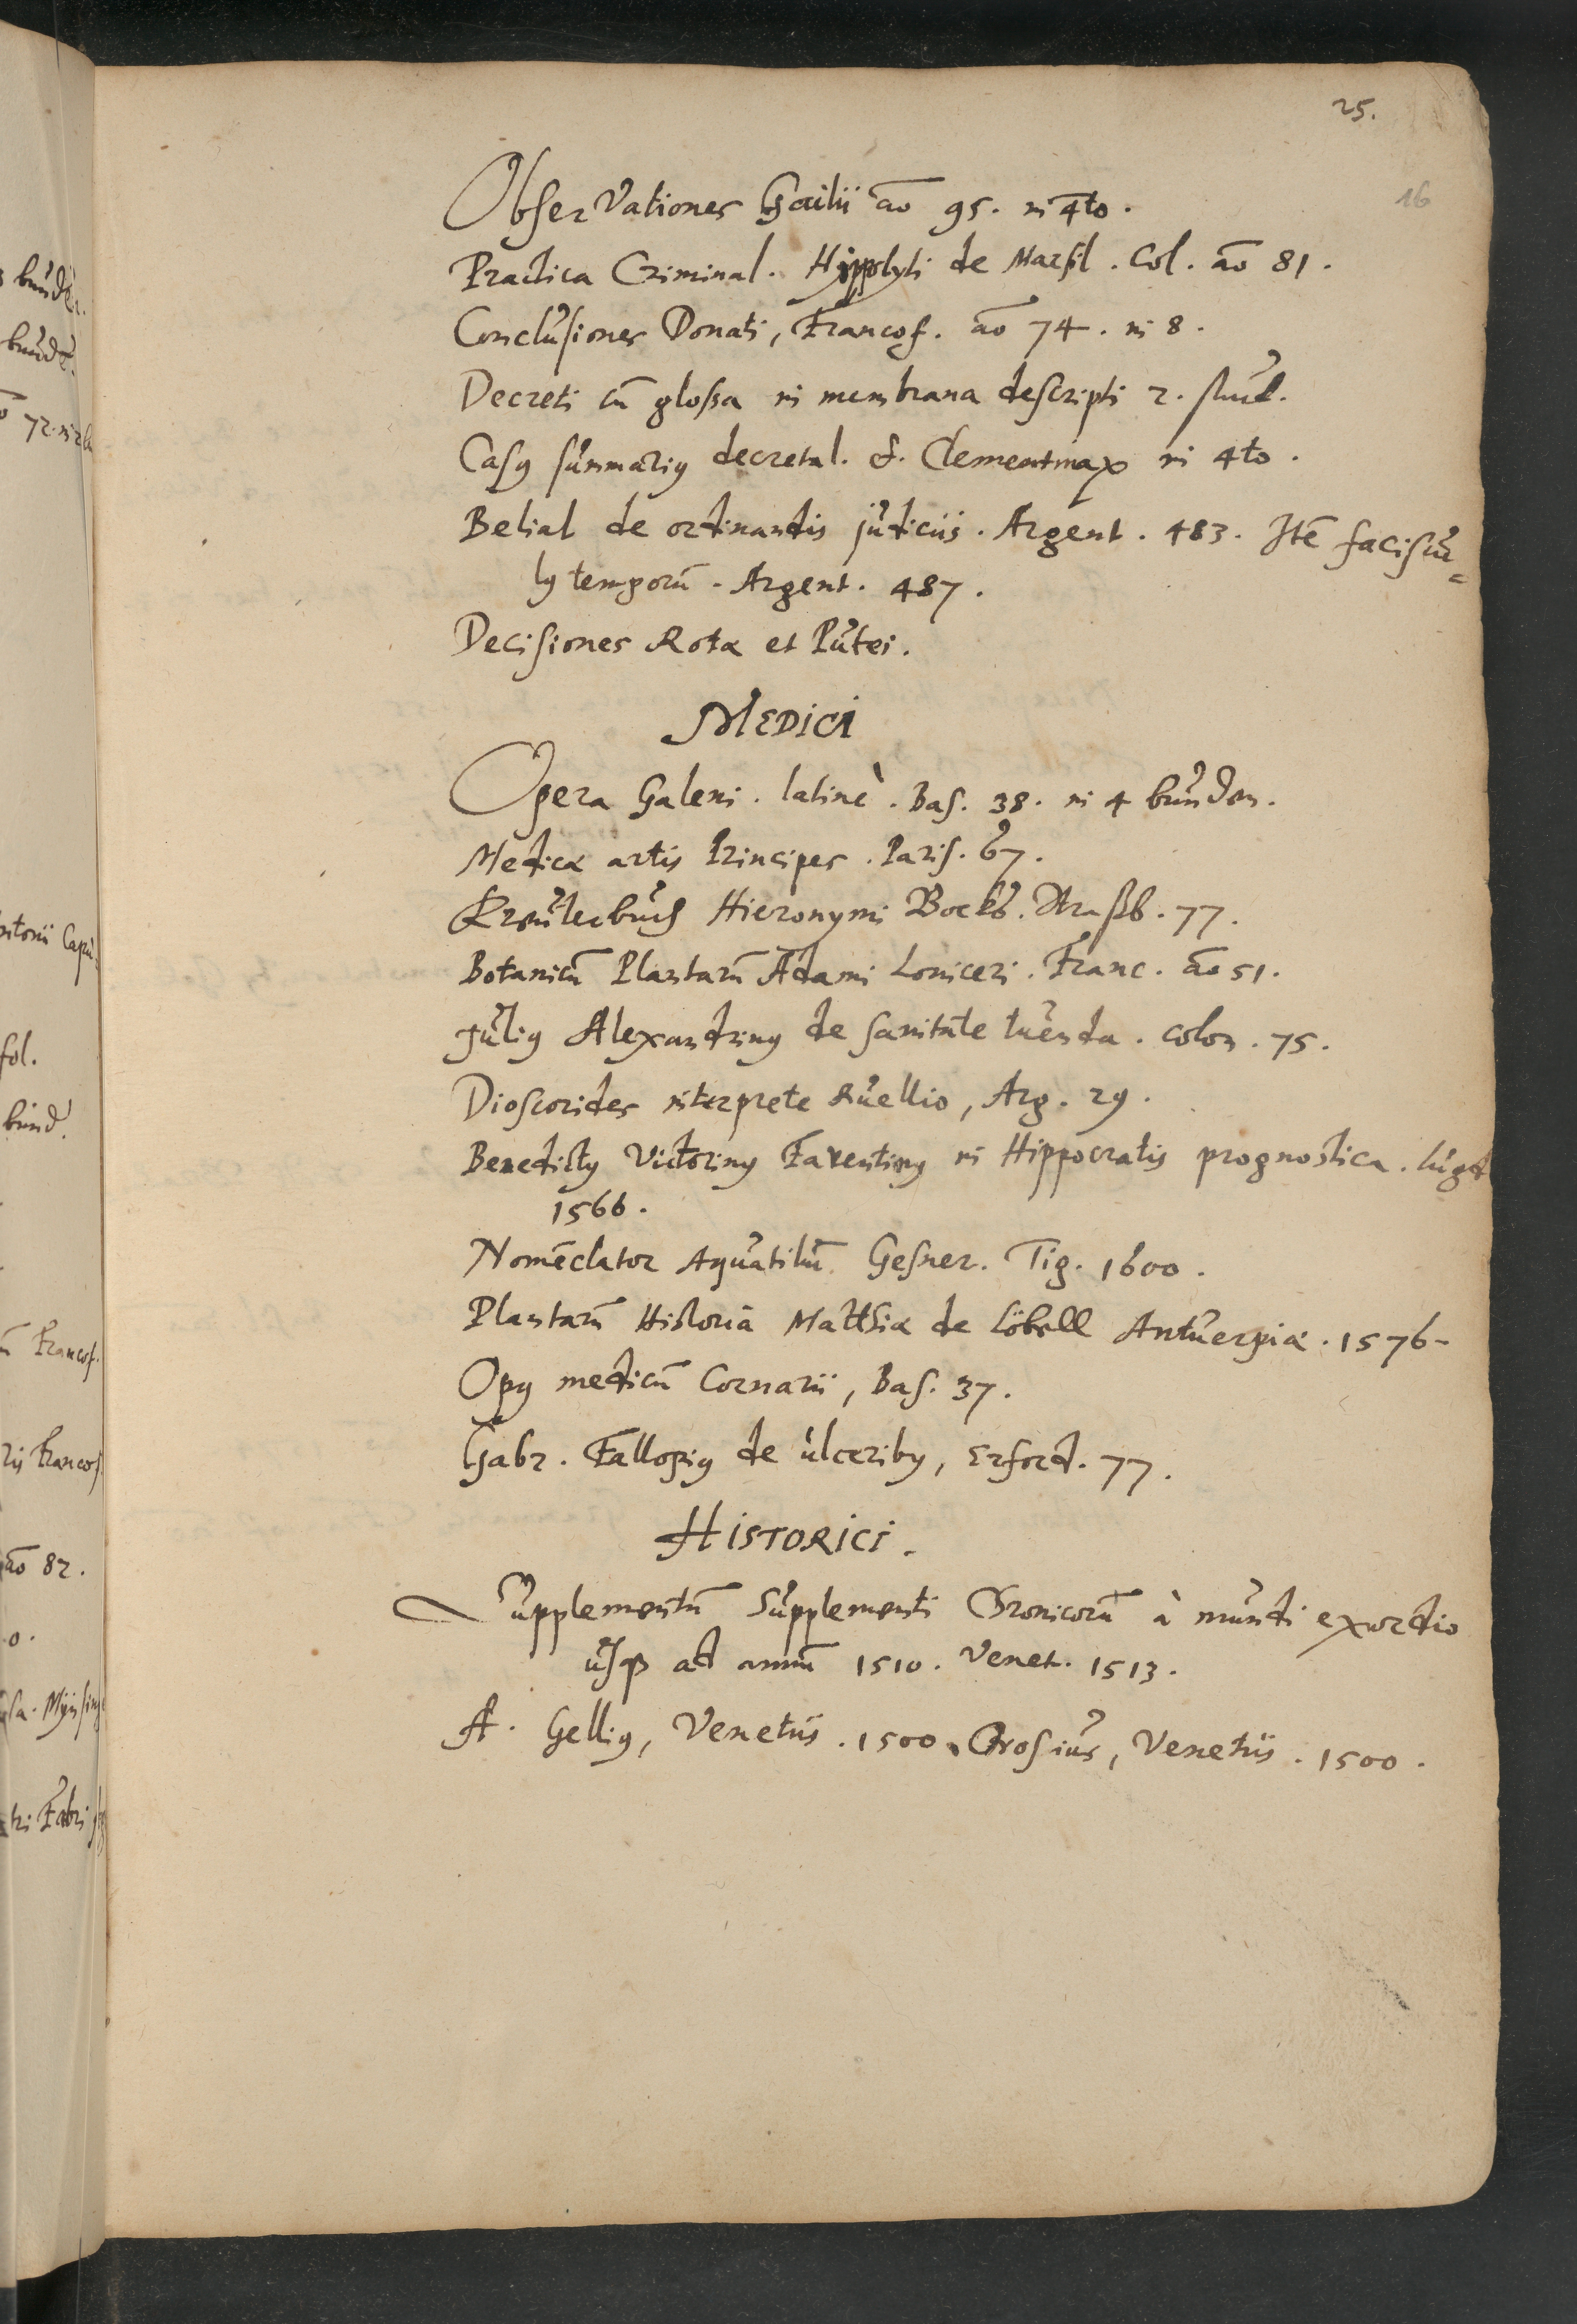 25.
16
Observationes Gailii āo 95. in 4to.
Practica Criminal. Hippolyti de Marsil. Col. āo 81.
Conclusiones Donati, Francof. āo 74. in 8.
Decreti cū glossa in membrana descripti 2. stuck.
Casꝰ summariꝰ decretal. & Clementinaꝝ in 4to.
Belial de ordinandis judiciis. Argent. 483. Itē faciscu=
lꝰ temporū. Argent. 487.
Decisiones Rotæ et Putei.
MEDICI
Opera Galeni. latinè. Bas. 38. in 4 bunden.
Medicæ artis Principes. Paris. 67.
Kreuterbuch Hieronymi Bocks. Straßb. 77.
Botanicū Plantarū Adami Loniceri. Franc. āo 51.
Juliꝰ Alexandrinꝰ de sanitate tuenda. Colon. 75.
Dioscorides interprete Ruellio, Arg. 29.
Benedictꝰ Victorinꝰ Faventinꝰ in Hippocratis prognostica. lugd
1566.
Nomēclator Aquatiliū Gesner. Tig. 1600.
Plantarū Historia Matthiæ de Löbell Antuerpiæ. 1576.
Opꝰ medicū Cornarii, Bas. 37.
Gabr. Fallopiꝰ de ulceribꝰ, Erford. 77.
HISTORICI.
Supplementū Supplementi Chronicorū à mundi exordio
usqꝫ ad annū 1510. Venet. 1513.
A. Gelliꝰ, Venetiis. 1500. Orosius, Venetiis. 1500.